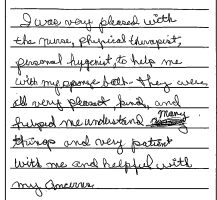 I was very pleased with
the nurse, physical therapist,
personal hygenist, to help me
with my sponge bath - they were
all very pleasant, kind, and
helped me understand many
things and very patient
with me and helpful with
my